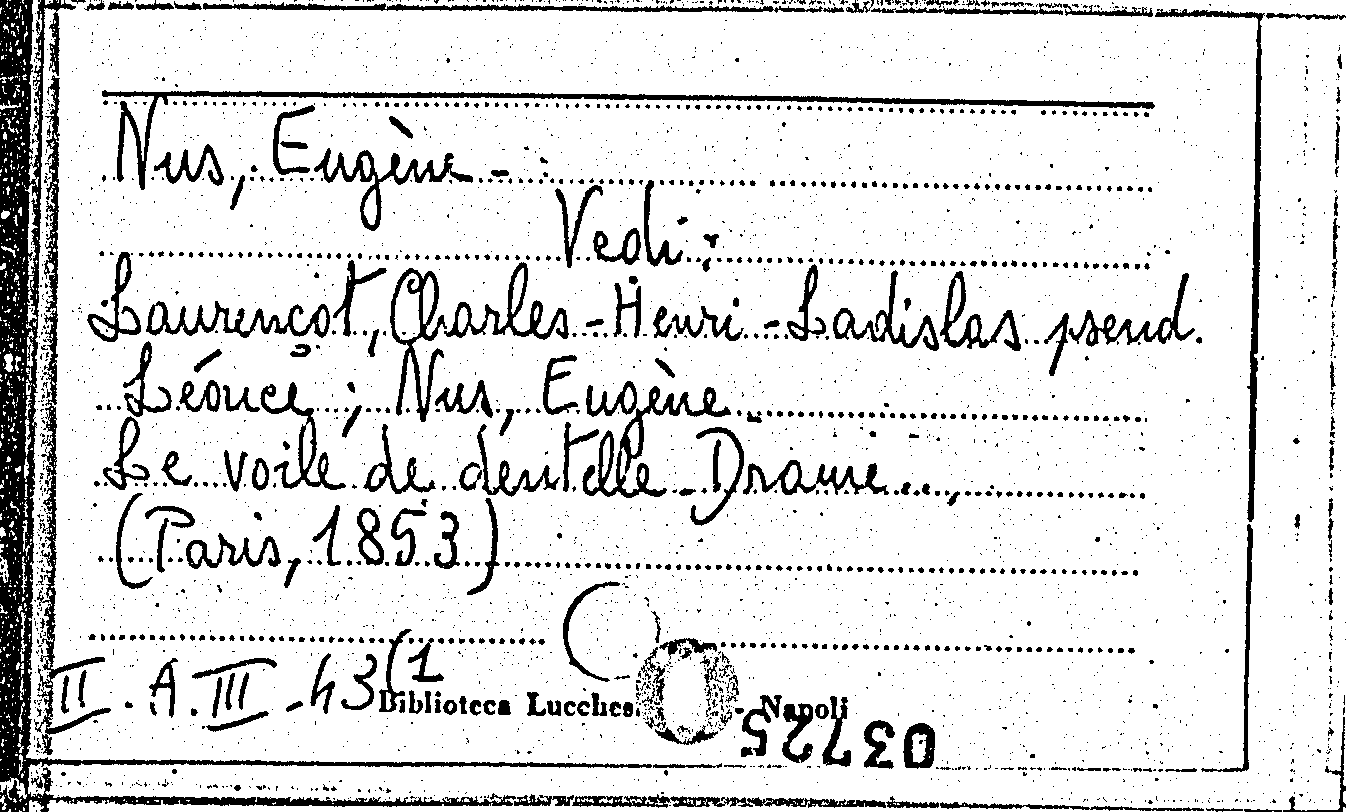 Nus, Eugène -
Vedi:
Laurençot, Charles-Henri-Ladislas pseud.
Léonce; Nus, Eugène.
Le voile de dentelle. Drame...,
(Paris, 1853)
II. A. III - 43(1
Biblioteca Lucches. - Napoli
03725